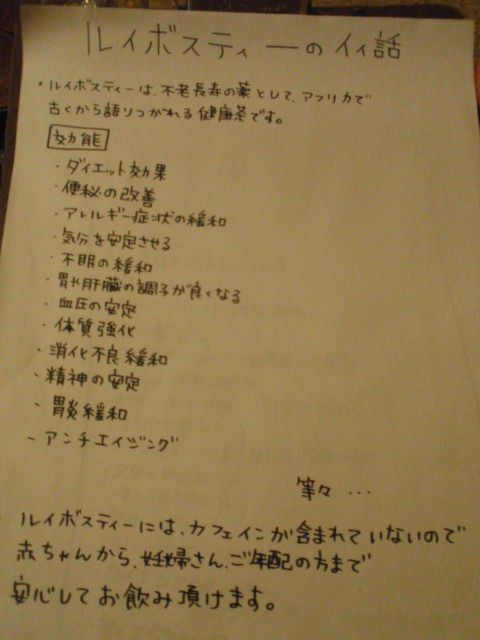 ルイボスティーのイイ話
・ルイボスティーは、不老長寿の薬として、アフリカで
古くから語りつがれる健康茶です。
効能
・ダイエット効果
・便秘の改善
・アレルギー症状の緩和
・気分を安定させる
・不眠の緩和
・胃や肝臓の調子が良くなる
・血圧の安定
・体質強化
・消化不良緩和
・精神の安定
・胃炎緩和
・アンチエイジング
等々…
ルイボスティーには、カフェインが含まれていないので
赤ちゃんから、妊婦さん、ご年配の方まで
安心してお飲み頂けます。